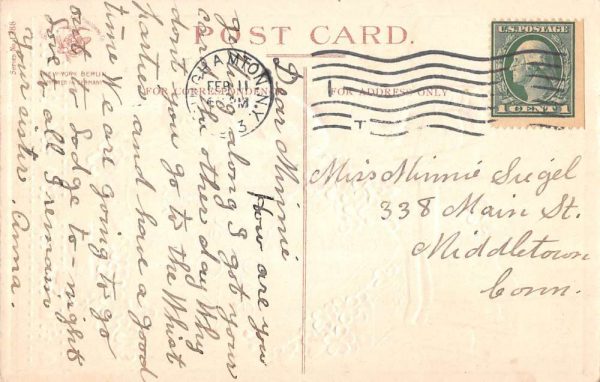 POST CARD.
FOR CORRESPONDENCE
FOR ADDRESS ONLY
NEW YORK BERLIN
BINGHAMTON, N.Y.
FEB
M
3
U.S. POSTAGE
1 CENT 1
Dear Minnie
How are you
getting along I got your
card the other day Why
dont you go to the Whist
parties and have a good
time We are going to go
out to Lodge to-night
love to all I remain
your sister Anna.
Miss Minnie Siegel
338 Main St.
Middletown
Conn.